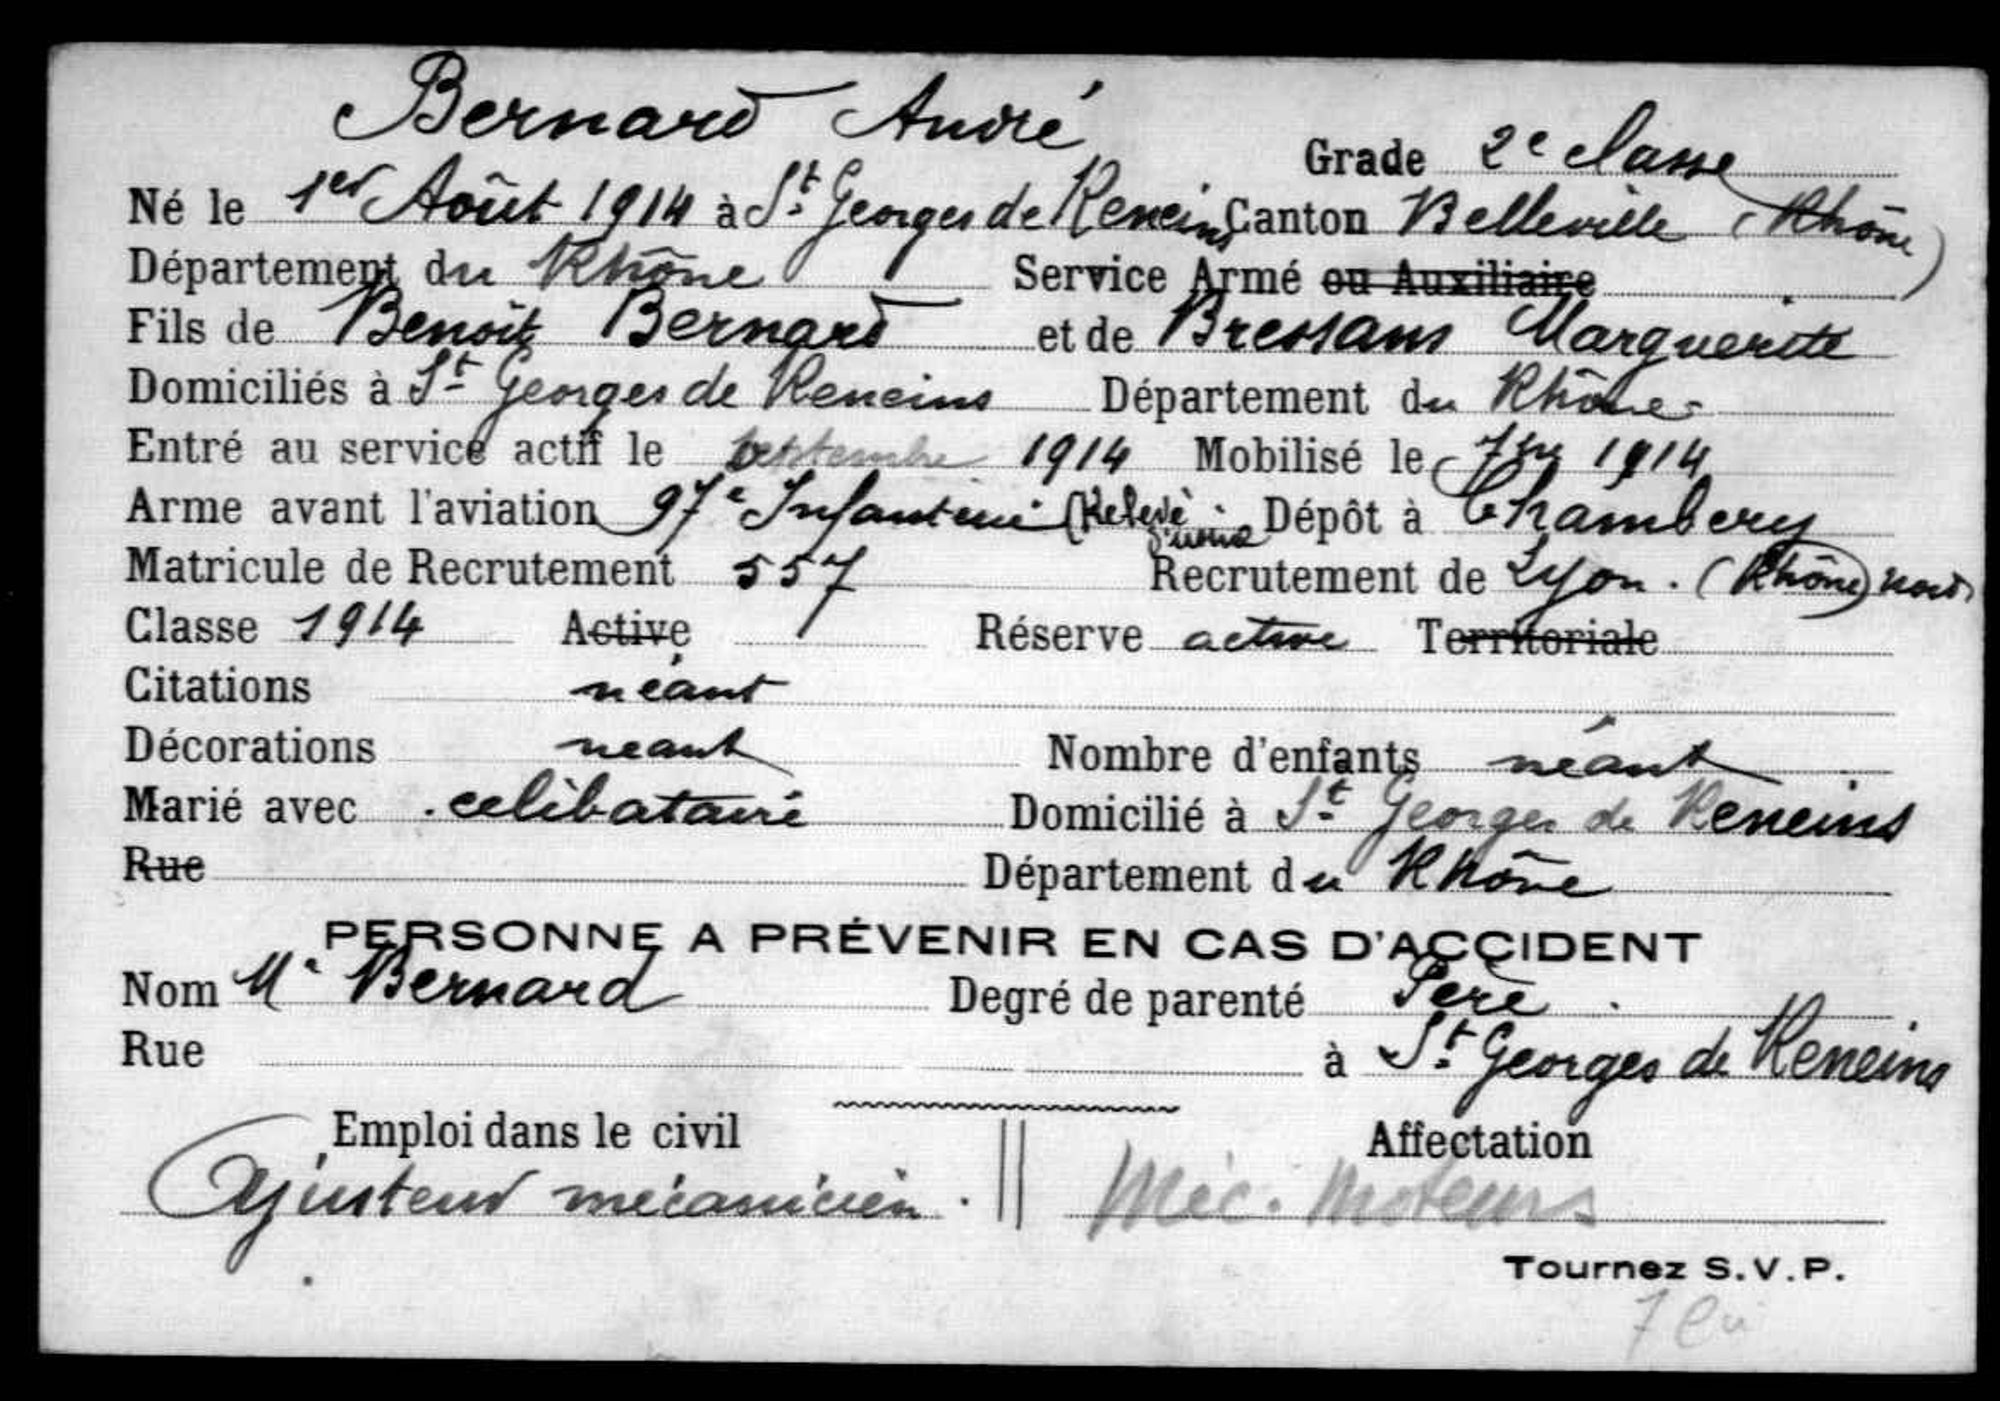 Bernard André
Grade 2e classe
Né le 1er Août 1914 à St Georges de Reneins Canton Belleville (Rhône)
Département du Rhône Service Armé ou Auxiliaire
Fils de Benoît Bernard et de Bressans Marguerite
Domiciliés à St Georges de Reneins Département du Rhône
Entré au service actif le septembre 1914 Mobilisé le 7bre 1914
Arme avant l'aviation 97e Infanterie Dépôt à Chambery
Matricule de Recrutement 557 Recrutement de Lyon. (Rhône) nord
Classe 1914 Active Réserve active Territoriale
Citations néant
Décorations neant Nombre d'enfants néant
Marié avec celibataire Domicilié à St Georges de Reneins
Rue Département du Rhône
PERSONNE A PRÉVENIR EN CAS D'ACCIDENT
Nom Mr Bernard Degré de parenté Père
Rue à St Georges de Reneins
Emploi dans le civil Affectation
Ajusteur mécanicien. Méc. Moteurs
Tournez S.V.P.